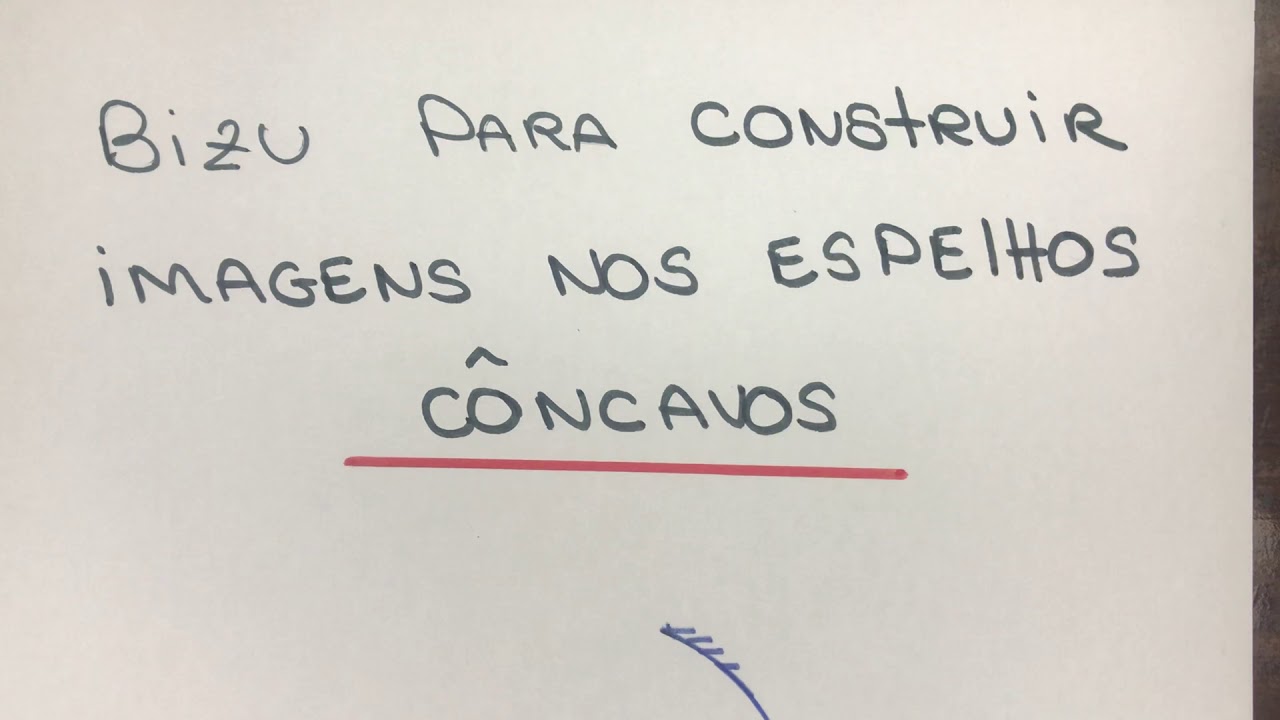 BiZU PARA CONStRUiR
iMAGENS NOS ESPElHOS
CÔNCAVOS